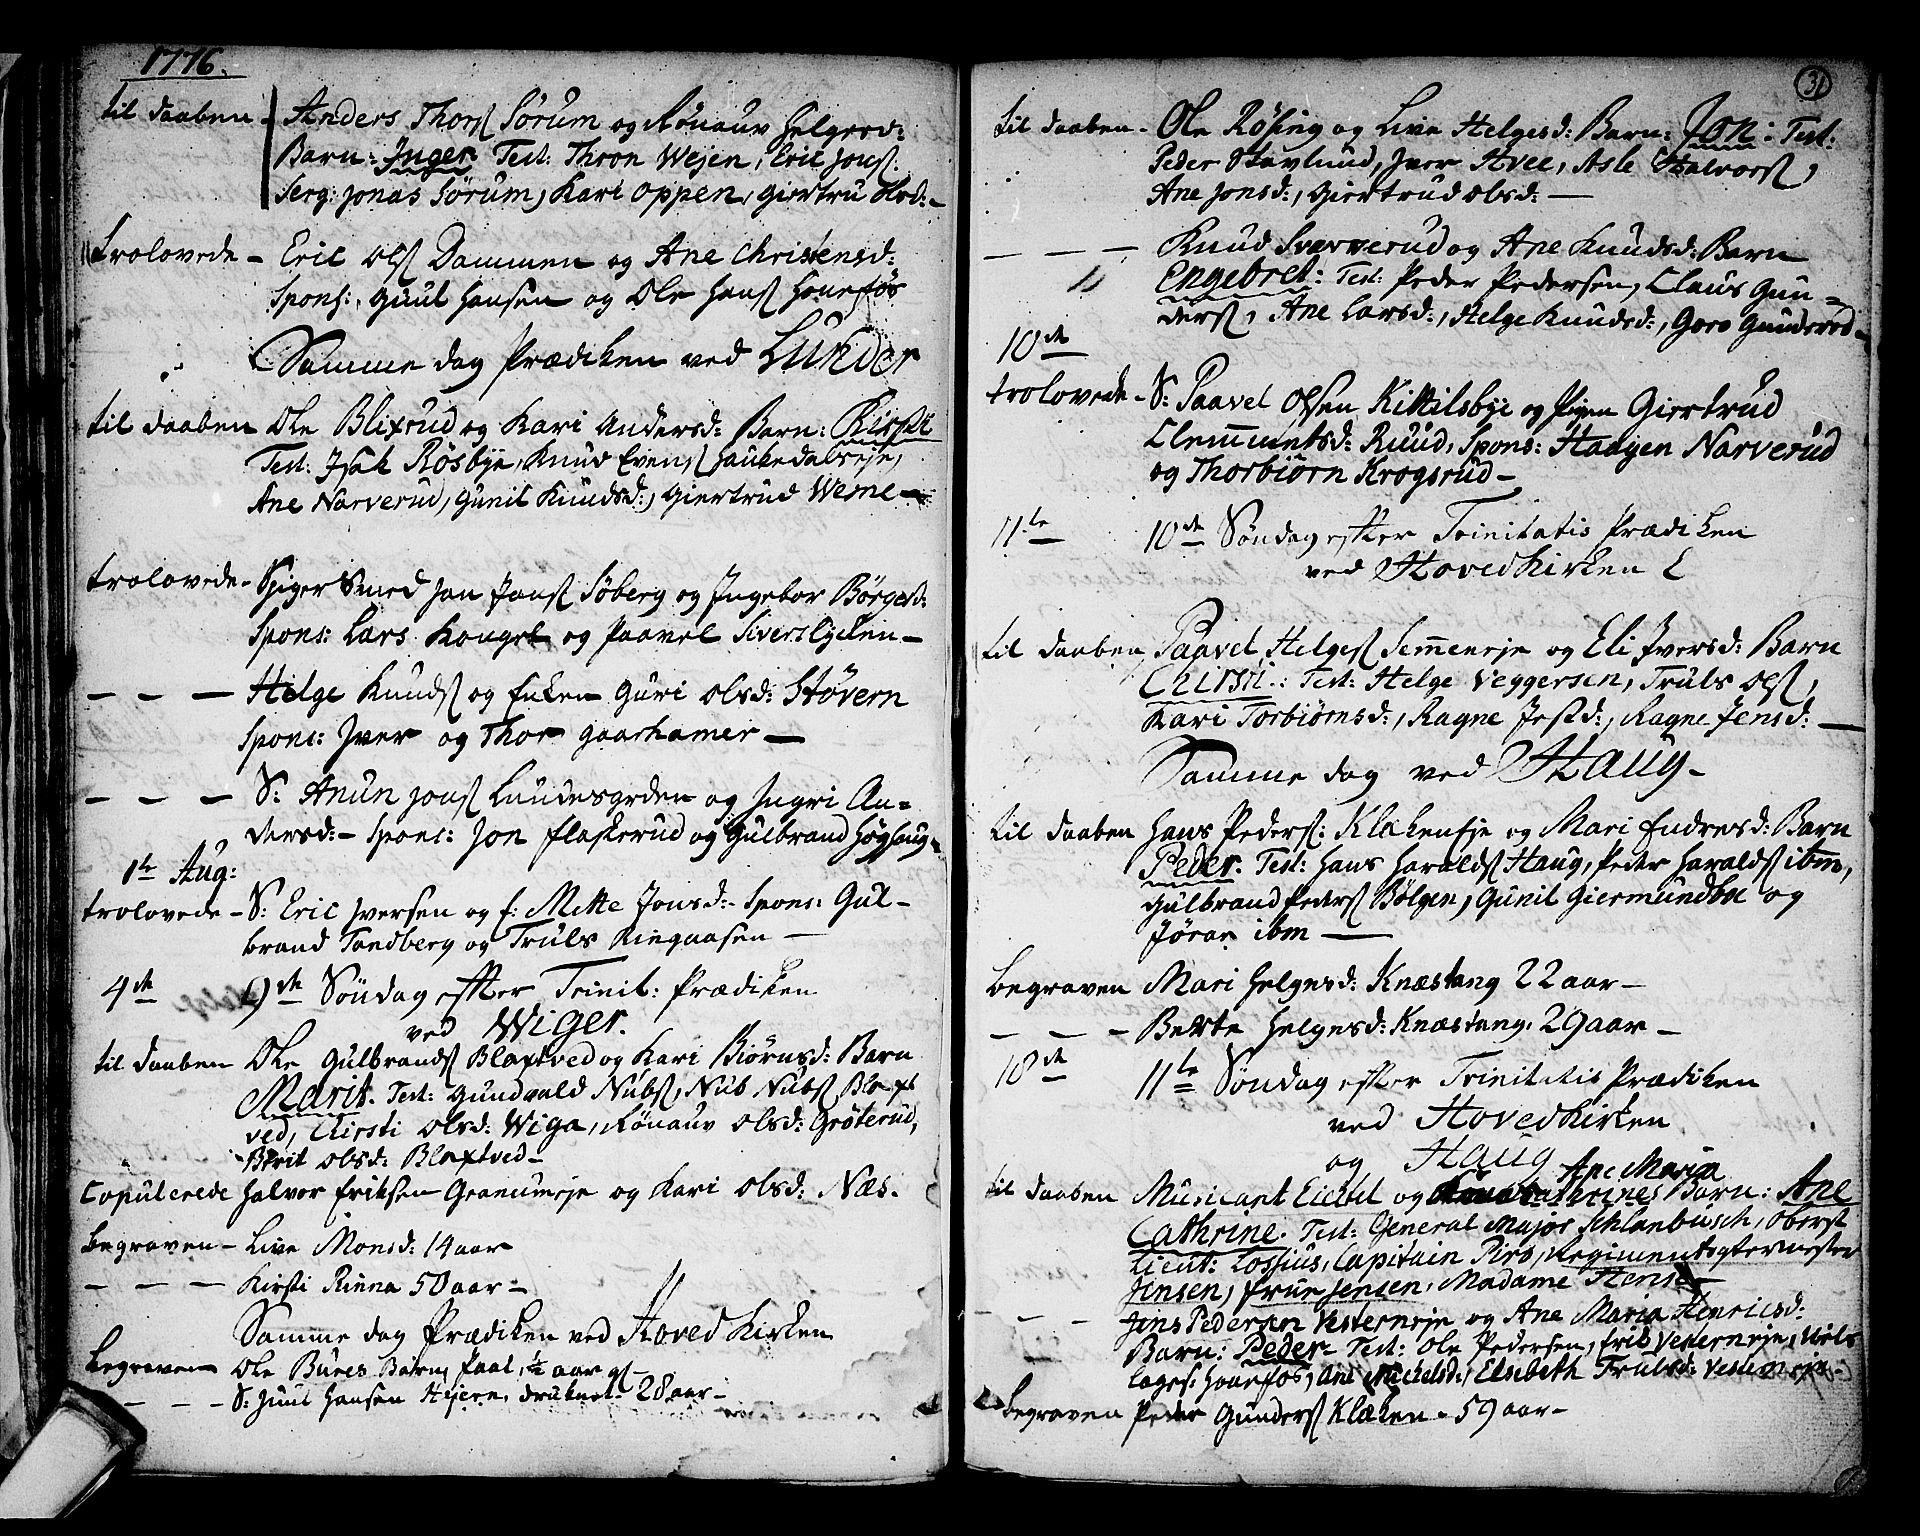 1776.
til daaben - Anders Thors Sørum og Rønauv Helgesd:
Barn: Inger Test: Thron Wejen, Eric Jons
Serg: Jonas Sørum, Kari Oppen, Giertru Hod:-
trolovede - Eric Ols Dammen og Ane Christensd:
Spons: Guul Hansen og Ole Hans Hønefos
Samme dag Prædiken ved Lunder
til daaben Ole Blixrud og Kari Andersd: Barn: Kirsti
Test: Isak Røsbye, Knud Evens Haukedalseje,
Ane Narverud, Gunil Knudsd:, Giertrud Werne -
trolovede - Spiger Smed Jan Jans Søberg og Ingebor Børgesd:
Spons: Lars Konget og Paavel Siverslycken -
- - - Helge Knuds og Enken Guri Olsd: Støvern
Spons: Iver og Thor Gaarhamer -
- - - S: Anun Jons Lundesgrden og Ingri An=
dersd: - Spons: Jon Flaskerud og Gulbrand Høghaug -
1te Aug:
trolovede - S: Eric Iversen og f: Mette Jonsd: - Spons: Gul-
brand Tandberg og Truls Ringaasen -
4de 9de Søndag effter Trinit: Prædiken
ved Wiger.
til daaben Ole Gulbrands Blaxtved og Kari Biørnsd: Barn
Marit. Test: Gundvald Nubs, Nub Nubs Blaxt
ved, Kirsti Olsd: Wiga, Rønauv Olsd: Grøterud,
Berit Olsd: Blaxtved -
Copulerede Halvor Eriksen Granumeje og Kari Olsd: Næs.
begraven - Live Monsd: 14 aar
- - - Kirsti Rinna 50 aar -
Samme dag Prædiken ved HovedKirken
begraven Ole Bures Barn Paal, ½ aar gl -
- - - S: Juul Hansen Hiern, druknet - 28 aar -
31
til daaben - Ole Røsing og Live Helgesd: Barn: Jon: Test:
Peder Stavlund, Iver Hvee, Asle Halvors,
Ane Jonsd:, Giertrud Olsd: -
- - - Knud Sværverud og Ane Knudsd: Barn
Engebret: Test: Peder Pedersen, Claus Gun=
ders, Ane Larsd:, Helge Knudsd:, Goro Gundersd -
10de
trolovede - S: Paavel Olsen Kittilsbye og Pigen Giertrud
Clemmetsd: Ruud, Spons: Haagen Narverud
og Thorbiørn Krogsrud -
11te 10de Søndag effter Trinitatis Prædiken
ved HovedKirken
til daaben Paavel Helges Semmeneje og Eli Iversd: Barn
Chirsti: Test: Helge Veggersen, Truls Ols,
Kari Torbiørnsd:, Ragne Jensd:, Ragne Jensd: -
Samme dag ved Haug -
til daaben Hans Peders: Klækeneje og Mari Endresd: Barn
Peder. Test: Hans Haralds Haug, Peder Haralds ibm,
Gulbrand Peders Bølgen, Gunil Giermundbo og
Jøran ibm -
begraven Mari Helgesd: Knæstang 22 aar -
- - - Berte Helgesd: Knæstang. 29 aar -
18de 11te Søndag effter Trinitatis Prædiken
ved HovedKirken
og Haug
Ane Maria
til daaben Musicant Eichtel og Cathrines Barn: Ane
Cathrine. Test: General Major Schlanbusch, Oberst
Lieut: Lossius, Capitain Piro, Regimentsqtermester
Jensen, Frue Jensen, Madame Hense
- - Jens Pedersen Vesterneje og Ane Maria Henricsd:
Barn: Peder Test: Ole Pedersen, Erik Vesterneje, Niels
Lages: Honefos, Ane Mickelsd:, Elsebeth Trulsd: Vesterneje -
begraven Peder Gunders Klæken - 59 aar -